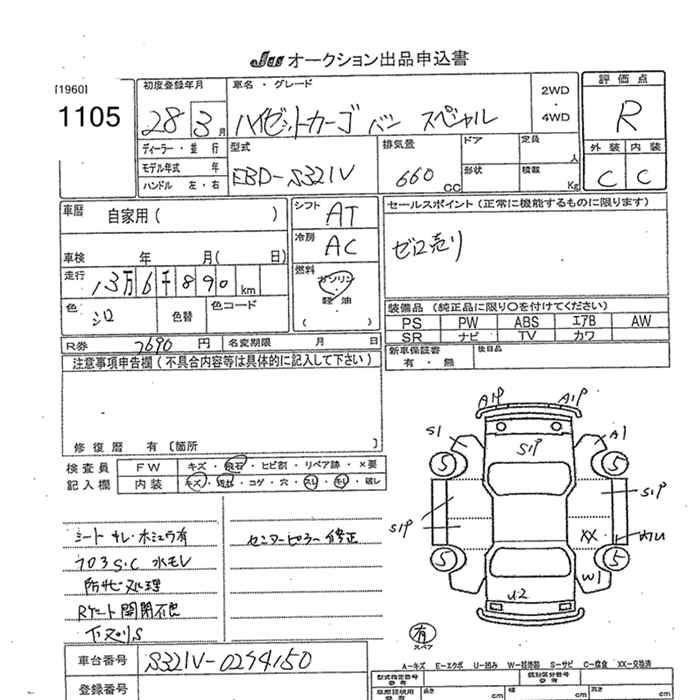 JU オークション出品申込書
[1960]
1105
初度登録年月
28 3月
車名・グレード
ハイゼットカーゴ バン スペシャル
2WD
・
4WD
評価点
R
外装 内装
C C
ディーラー・並行
モデル年式 年
ハンドル 左・右
型式
EBD-S321V
排気量
660 CC
ドア
定員
人
形状
積載
Kg
車歴
自家用( )
シフト
AT
冷房
AC
燃料
ガソリン
・
軽油
( ・ )
車検 年 月( 日)
走行
13万6千890km
色
シロ
色替
色コード
R券 7690円
名変期限 月 日
セールスポイント(正常に機能するものに限ります)
ゼロ売り
装備品(純正品に限り○を付けてください)
PS PW ABS エアB AW
SR ナビ TV カワ
新車保証書
有・無
後日品
注意事項申告欄(不具合内容等は具体的に記入して下さい)
修復歴 有〔箇所 〕
検査員
記入欄
FW キズ・飛石・ヒビ割・リペア跡・×要
内装 キズ・汚れ・コゲ・穴・スレ・キレ・破レ
シート キレ・ホシュウ有
703 S・C 水モレ
防サビ処理
Rゲート開閉不良
下スリS
センターピラー 修正
A1P A1P
S1 A1
S1P
5 5
S1P
S1P
XX
カレ
5 5
W1
U2
有
スペア
A-キズ E-エクボ U-凹み W-補修跡 S-サビ C-腐食 XX-交換済
車台番号
S321V-0294150
登録番号
型式指定番号
類別区分番号
長さ cm 幅 cm 高さ cm